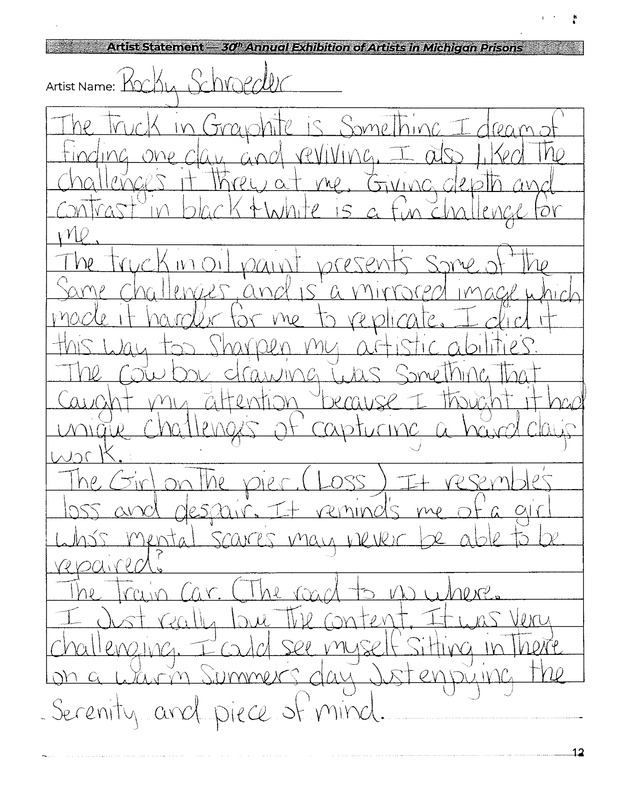 Artist Statement — 30th Annual Exhibition of Artists in Michigan Prisons
Artist Name: Rocky Schroeder
The truck in Graphite is Something I dream of
finding one day and reviving. I also liked the
challenge's it threw at me. Giving depth and
contrast in black & White is a fun challenge for
me.
The truck in oil paint present's some of the
Same challenges and is a mirrored image which
made it harder for me to replicate. I did it
this way too Sharpen my artistic abilitie's.
The Cowboy drawing was Something that
Caught my attention because I thought it had
unique challenges of capturing a hard day's
work.
The Girl on The pier. (Loss) It resemble's
loss and despair. It remind's me of a girl
who's mental scares may never be able to be
repaired?
The Train Car. (The road to no where.
I Just really love The content. It was Very
challenging. I could see myself Sitting in There
on a warm Summer's day Just enjoying the
Serenity and piece of mind.
12